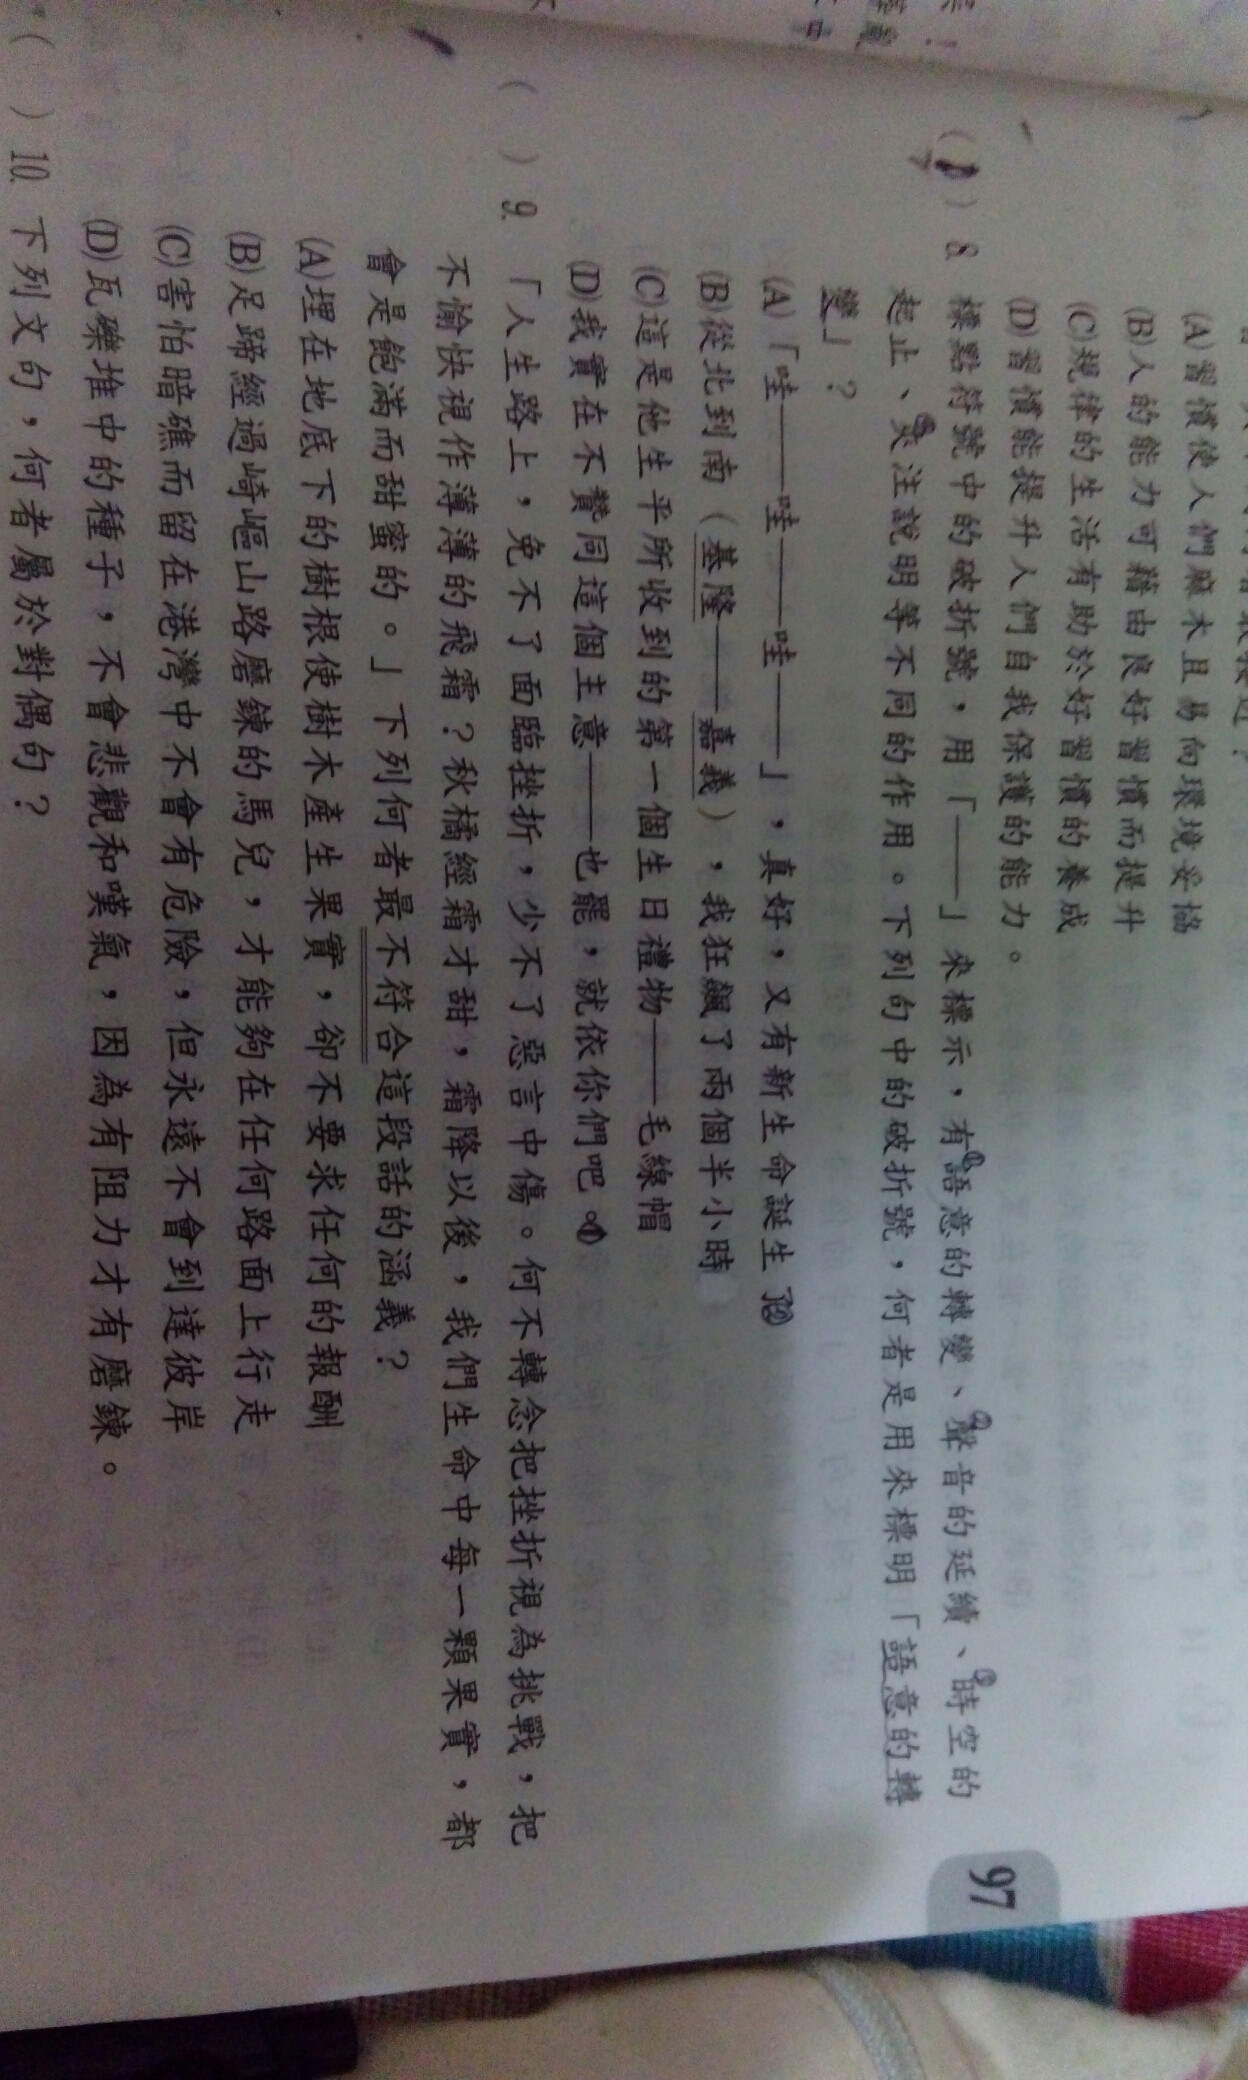 (A)習慣使人們麻木且易向環境妥協
(B)人的能力可藉由良好習慣而提升
(C)規律的生活有助於好習慣的養成
(D)習慣能提升人們自我保護的能力。
( ) 8. 標點符號中的破折號，用「——」來標示，有①語意的轉變、②聲音的延續、③時空的
起止、④夾注說明等不同的作用。下列句中的破折號，何者是用來標明「語意的轉
變」？
(A)「哇——哇——哇——」，真好，又有新生命誕生了②
(B)從北到南（基隆——嘉義），我狂飆了兩個半小時
(C)這是他生平所收到的第一個生日禮物——毛線帽
(D)我實在不贊同這個主意——也罷，就依你們吧。①
( ) 9. 「人生路上，免不了面臨挫折，少不了惡言中傷。何不轉念把挫折視為挑戰，把
不愉快視作薄薄的飛霜？秋橘經霜才甜，霜降以後，我們生命中每一顆果實，都
會是飽滿而甜蜜的。」下列何者最不符合這段話的涵義？
(A)埋在地底下的樹根使樹木產生果實，卻不要求任何的報酬
(B)足蹄經過崎嶇山路磨鍊的馬兒，才能夠在任何路面上行走
(C)害怕暗礁而留在港灣中不會有危險，但永遠不會到達彼岸
(D)瓦礫堆中的種子，不會悲觀和嘆氣，因為有阻力才有磨鍊。
( ) 10. 下列文句，何者屬於對偶句？
97